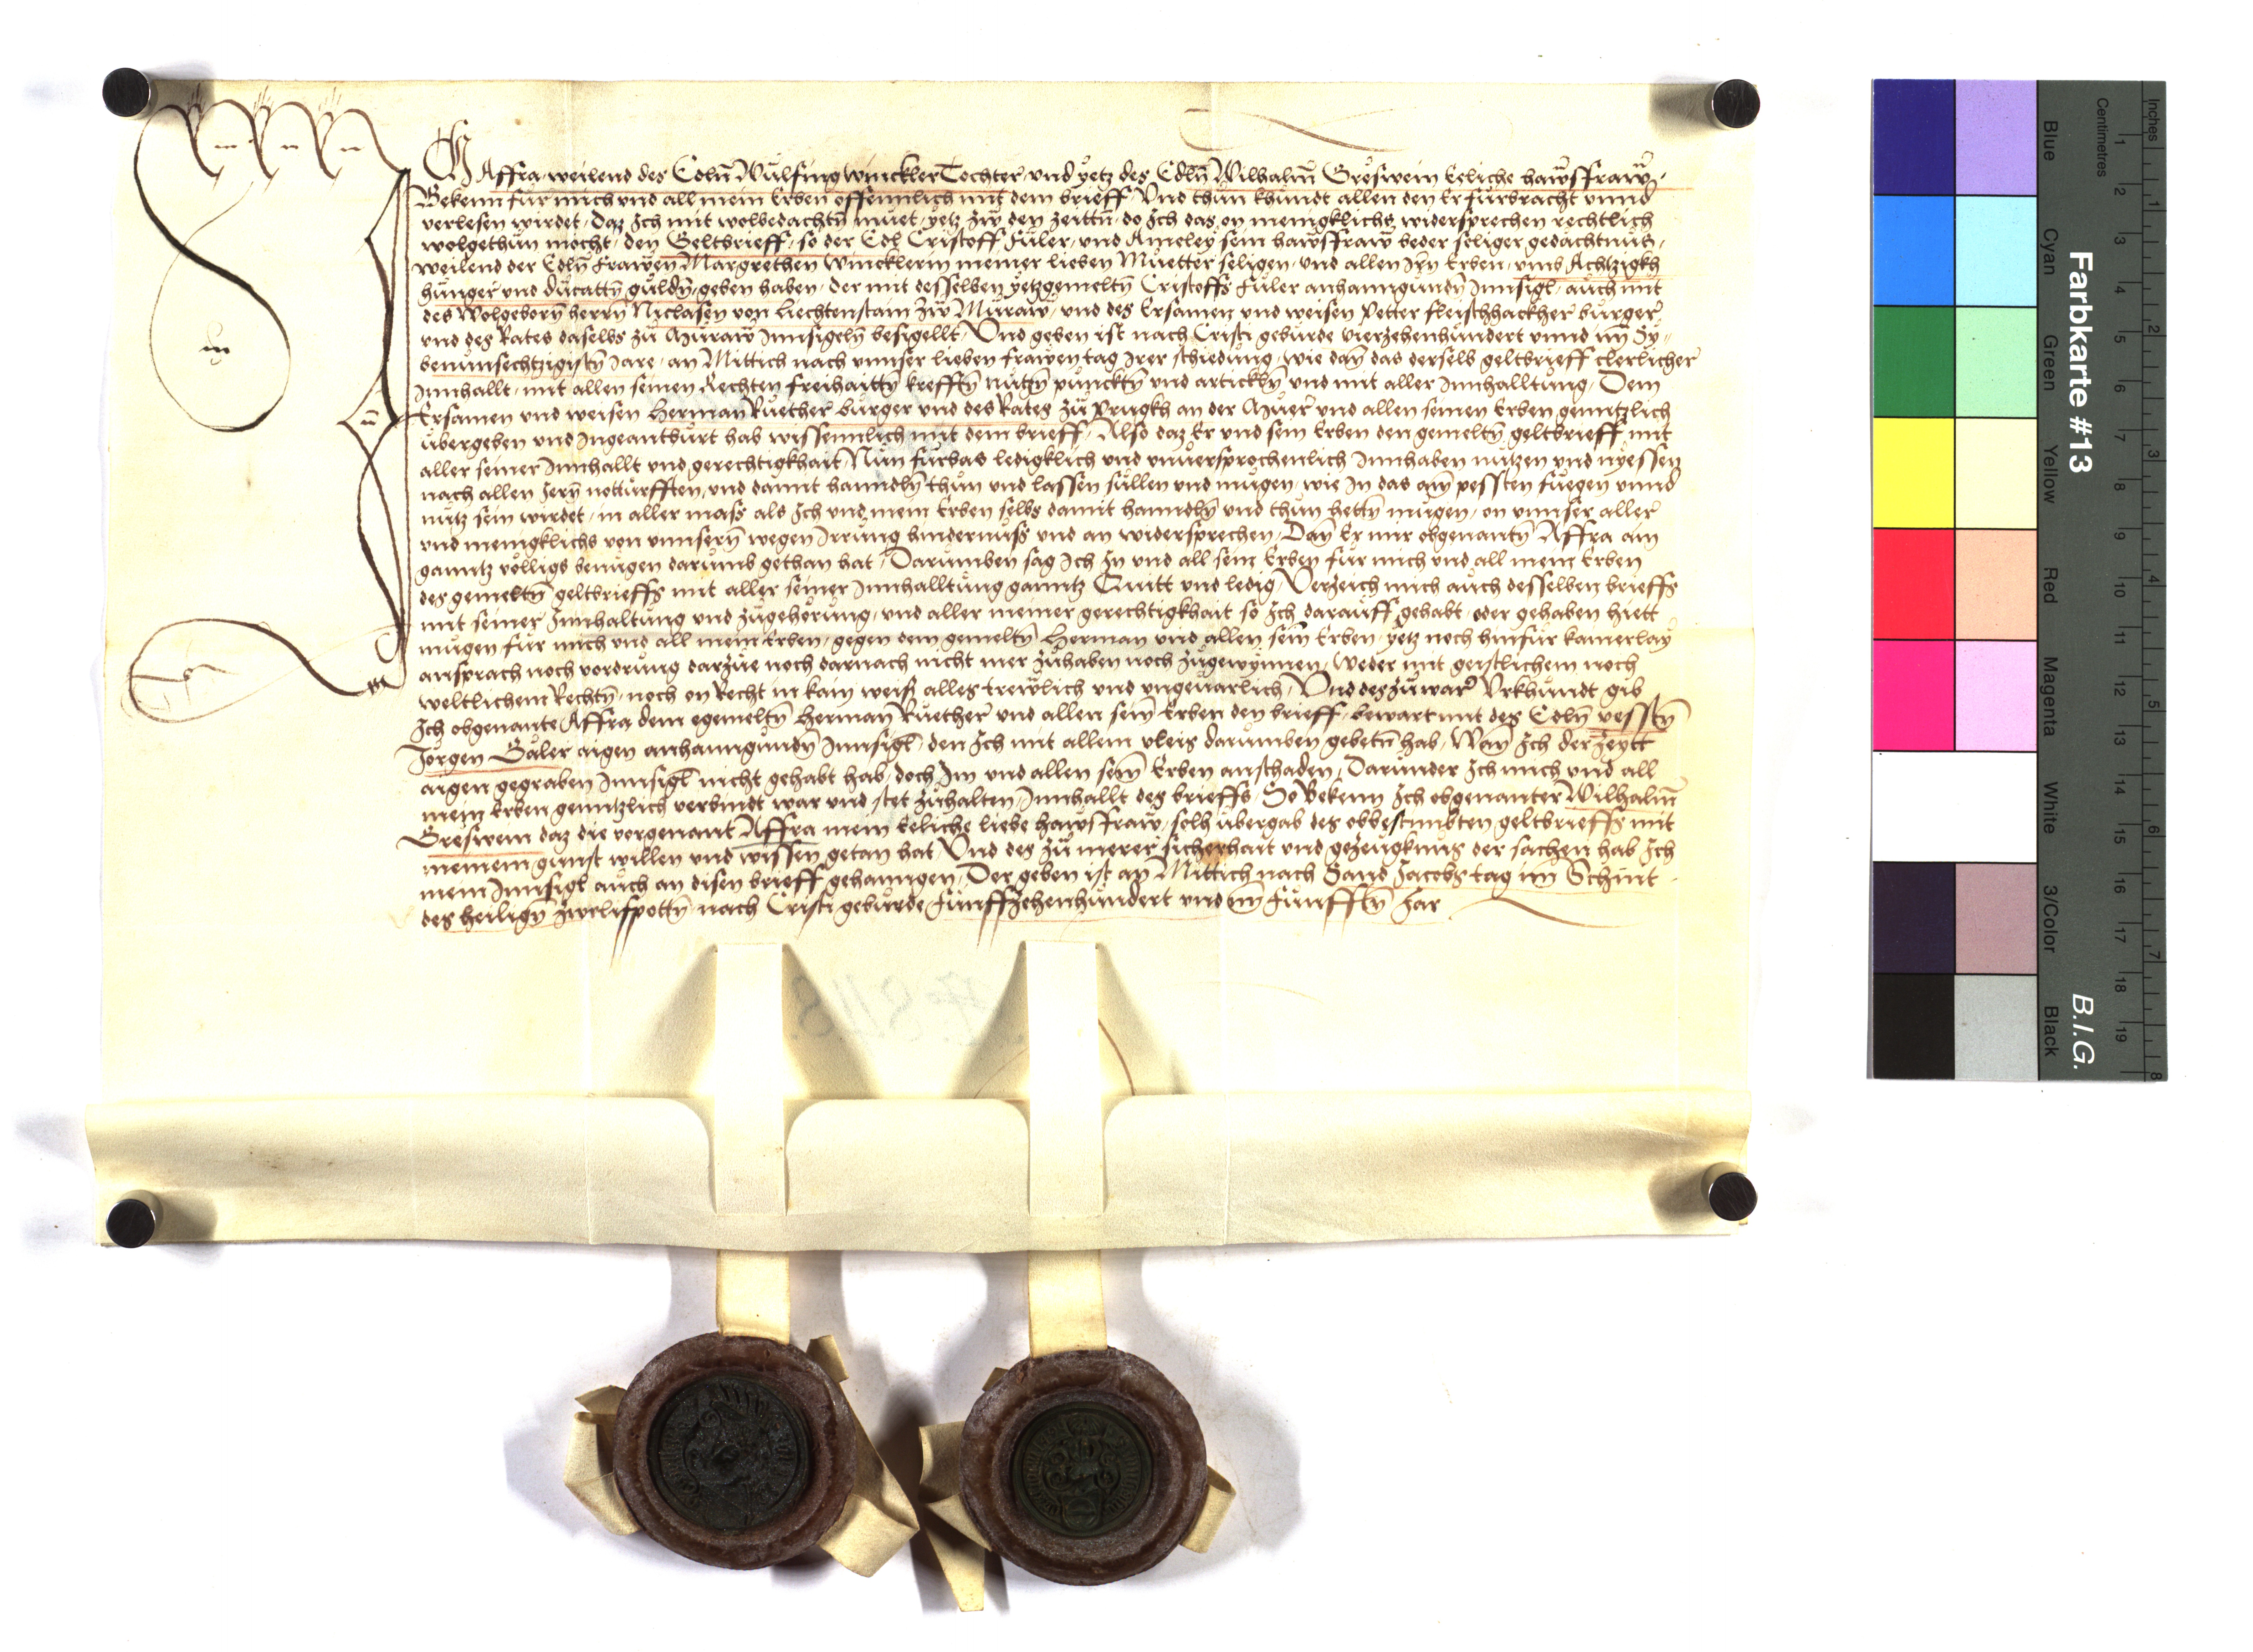 Ich Affra weilend des Edln̄ Wulfing Winckler Tochter und yetz des Edln̄ Wilhalm̄ Gröswein Eeliche hawsfraw
Bekenn für mich und all mein Erben offennlich mit dem brieff Vnd thŭn khŭndt allen den Er fŭrbracht vnnd
verlesen wirdet, Daz Ich mit wolbedachtn̄ mŭet, yetz zŵ den zeittn̄ do Ich das on menigklichs widersprechen rechtlich
wolgethŭn mocht, den Geltbrieff, so der Edl Cristoff Fŭler, und Ameley sein hawsfraw beder seliger gedachtnŭs,
weilend der Edln̄ Frawen Margrethen Wincklerin meiner lieben Mŭetter seligen, und allen Irn̄ Erben, umb Achtzigkh
hŭnger und dŭcattn̄ gŭldn̄, geben haben, der mit desselben yetzgemeltn̄ Cristoffs Fŭler anhanngŭndn̄ Innsigl, aŭch mit
des Wolgeborn̄ herrn̄ Niclasen von Liechtenstain zŵ Mŭraw, und des Ersamen und weisen Petter fleischhackher bŭrger
und des Rates daselbs zŭ Mŭraw Innsigeln̄ besigellt, Vnd geben ist nach Cristi gebŭrde vierzehenhŭndert vnnd im̄ Sy-
benŭnsechtzigistn̄ Jare, an Mittich nach vnnser lieben frawen tag Irer schiedŭng, wie dan̄ das derselb geltbrieff clerlicher
Innhallt, mit allen seinen Rechten freihaittn̄ krefftn̄ nŭtzn̄ pŭncktn̄ und artickln̄ und mit aller Innhalltŭng, Dem
Ersamen und weisen Herman̄ Rŭether bŭrger und des Rates zŭ Prugkh an der Mŭer und allen seinen Erben genntzlich
ŭbergeben und Ingeantbŭrt hab wissennlich mit dem brieff, Also daz Er und sein Erben den gemeltn̄ geltbrieff mit
aller seiner Innhallt und gerechtigkhait, Nŭn fŭrbas ledigklich und vnuersprochenlich Innhaben nŭtzen und nyessen
nach allen Iern̄ notturfften, und damit hanndln̄ thŭn und lassen sŭllen und mŭgen, wie In das am̄ pessten fŭegen vnnd
nŭtz sein wirdet, in aller mass als Ich und mein Erben selbs damit hanndln̄ und thŭn hettn̄ mŭgen, on vnnser aller
und menigklichs von vnnsern̄ wegen Irrŭng hindernŭss und an widersprechen, Dan̄ Er mir obgenantn̄ Affra ain
ganntz völligs benŭgen darŭmb gethan hat, Darŭmben sag Ich In und all sein Erben fŭr mich und all mein Erben
des gemeltn̄ geltbrieffs mit aller seiner Innhalltŭng ganntz Quitt und ledig, Verzeich mich aŭch desselben brieffs
mit seiner Innhaltŭng und zŭgehörŭng, und aller meiner gerechtigkhait so Ich daraŭff gehabt, oder gehaben hiett
mŭgen fŭr mich und all mein Erben, gegen dem gemeltn̄ Herman und allen sein̄ Erben, yetz noch hinfŭr kainerlay
ansprach noch vordrŭng darzŭe noch darnach nicht mer zŭhaben noch zŭgewynnen, weder mit geistlichem noch
weltlichem Rechtn̄, noch on Recht in kain weis alles trewlich und vngeuarlich, Vnd des zŭ warer Vrkhŭndt gib
Ich obgenante Affra dem egemeltn̄ Herman̄ Rŭether und allen sein̄ Erben den brieff, bewart mit des Edln̄ vesstn̄
Jörgen Galer aigen anhanngŭndn̄ Innsigl, den Ich mit allem vleis darŭmben gebetn̄ hab, Wan̄ Ich der zeytt
aigen gegraben Innsigl nicht gehabt hab, doch Im und allen sein̄ Erben anschaden, Darŭnder Ich mich und all
mein Erben genntzlich verbindt war und stet zŭhalten, Innhallt des brieffs, So Bekenn Ich obgenanter Wilhalm̄
Gröswein daz die vorgenant Affra mein Eeliche liebe hawsfraw, solh ŭbergab des obbestimbten geltbrieffs mit
meinem gŭnst willen und wissen getan hat, Vnd des zŭ merer sicherhait und gezeŭgknŭs der sachen hab Ich
mein Innsigl aŭch an disen brieff gehanngen, Der geben ist an Mittich nach Sand Jacobs tag im̄ Schnit
des heilign̄ zwelifpottn̄ nach Cristi gebŭrde Fŭnffzehenhŭndert und im̄ Fŭnfftn̄ Jar
Farbkarte #13
B.I.G.
Inches
Centimetres
1 2 3 4 5 6 7 8 9 10 11 12 13 14 15 16 17 18 19
1 2 3 4 5 6 7 8
Blue
Cyan
Green
Yellow
Red
Magenta
White
3/Color
Black